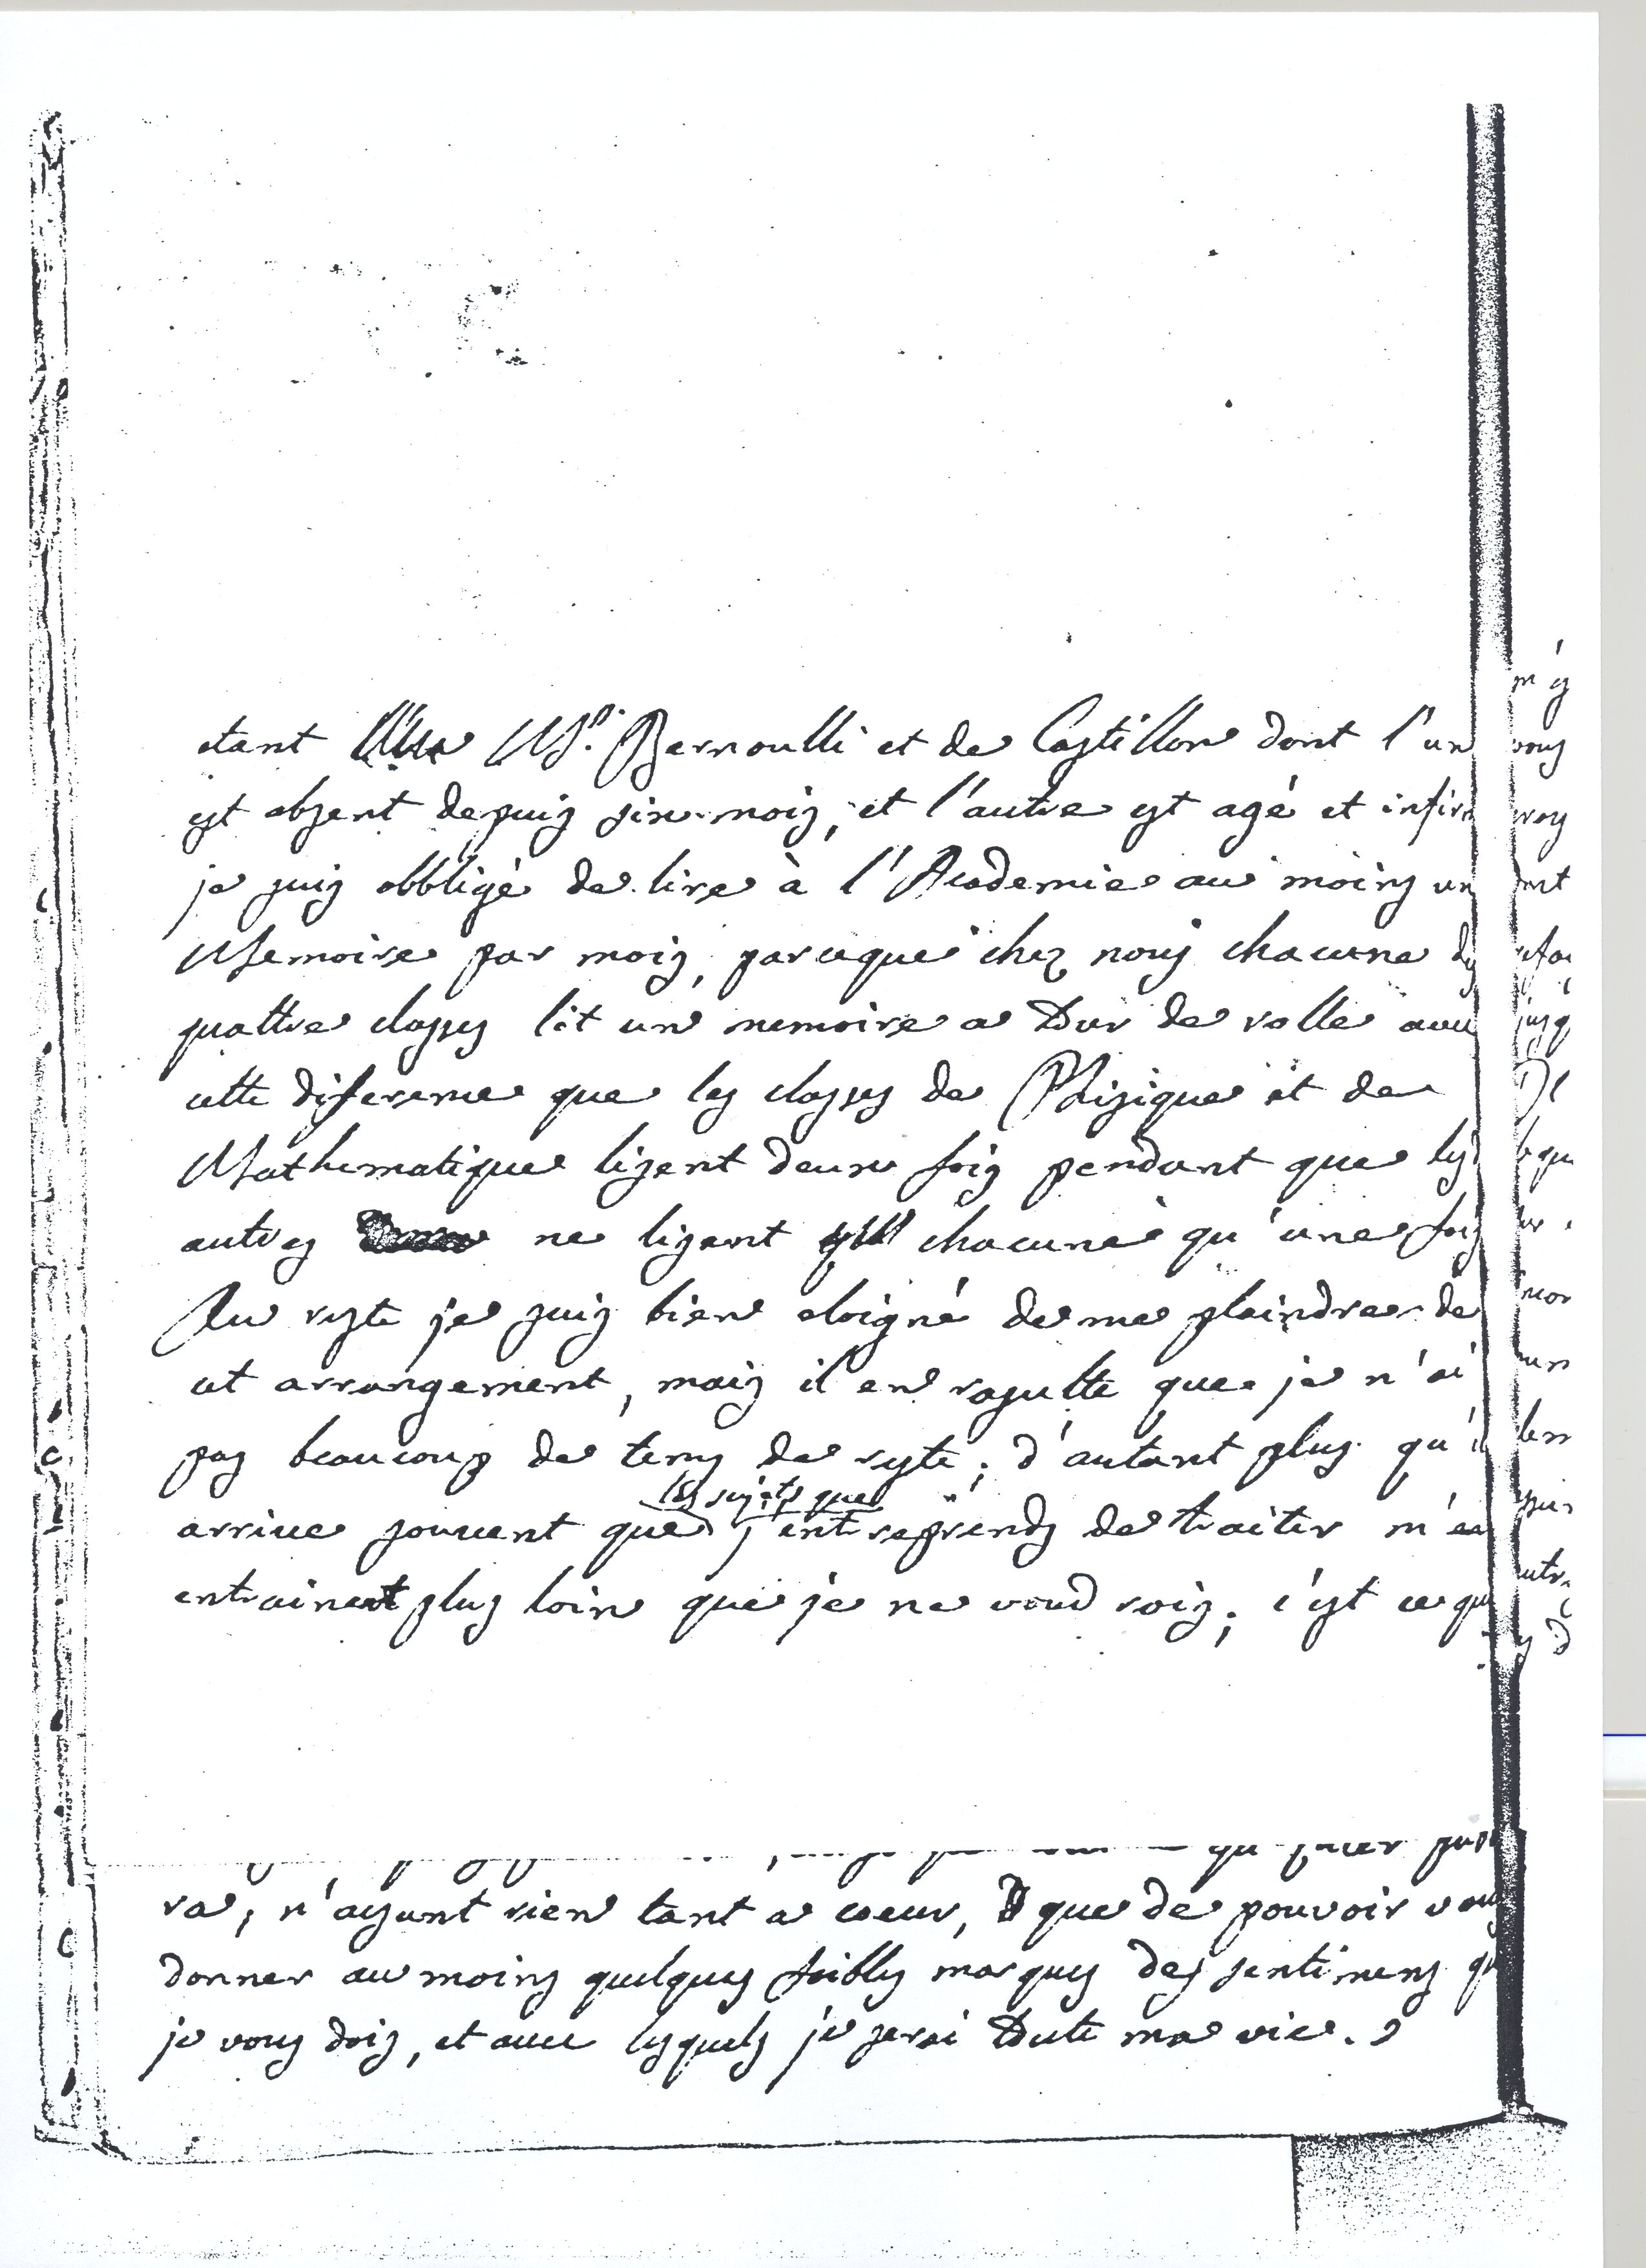 etant Mrs. Bernoulli et de Castillon dont l'un
est absent depuis six mois, et l'autre est agé et infirm
je suis obbligé de lire à l'Academie au moins un
Memoire par mois, parceque chez nous chacune des
quattre classes lit un memoire a tour de rolle avec
cette diference que les classes de Phisique et de
Mathematique lisent deux fois pendant que les
autres ne lisent chacune qu'une fois
Au reste je suis bien eloigné de me plaindre de
cet arrangement, mais il en resulte que je n'ai
pas beaucoup de tems de reste; d'autant plus qu'il
les sujets que
arrive souvent que j'entreprends de traiter m'en
entrainent plus loin que je ne voudrois; c'est ce que
ra, n'ayant rien tant a coeur, que de pouvoir vous
donner au moins quelques foibles marques des sentimens que
je vous dois, et avec lesquels je serai toute ma vie.